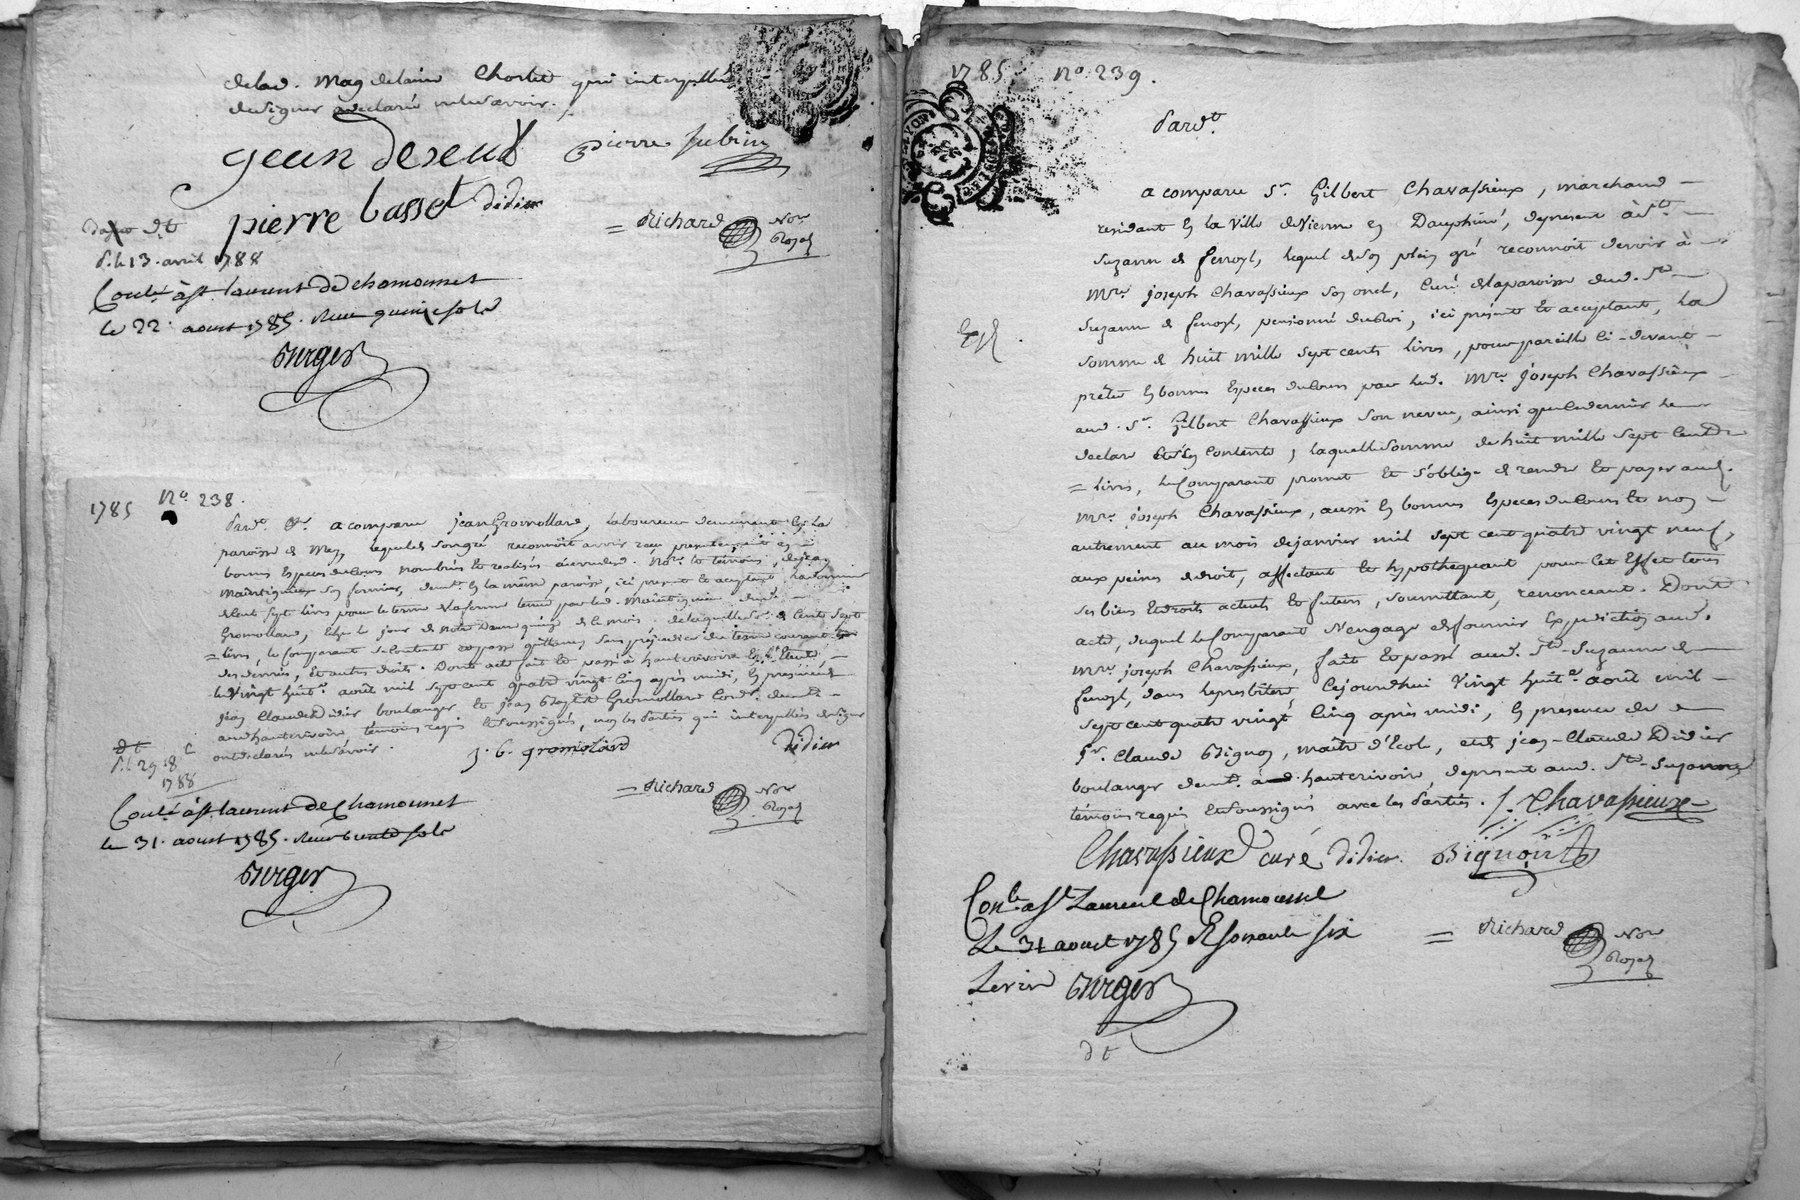 delad. Magdelaine Chorlet qui interpellée
de signer a declaré ne le savoir.
jean deseux pierre subrin
pierre basset didier
= Richard Nore Royal
d. le 13. avril 1788
Conlé à st. laurent de chamousset
le 22. aoust 1785. Reçu quinze sols
Burger
1785 no. 238.
Pardt. &. a comparu jean Gromollard, laboureur demeurant en la
paroisse de Meys, lequel de son gré reconnoit avoir reçu presentement en
bonnes Especes du Cours nombrées et realisées au vu du d. Nore. et témoins, de jean
Maintigneux son fermier, demt. en la même paroisse, ici present et acceptant, la somme
de Cent sept livres pour le terme de la ferme tenue par led. Maintigneux dud.
Gromollard, Echu le jour de notre Dame quinze de ce mois, de laquelle se. de Cent sept
= livres, le Comparant se Contente et passe quittance sans préjudice du terme courant
des denrées, et autres droits. Dont acte fait et passé à hauterivoire En l'Etude
le vingt huite. août mil sept cent quatre vingt cinq après midi, En presence de
jean Claude Didier boulanger et jean Baptiste Gromollard Cordr. demt.
aud. hauterivoire témoins requis et soussignés, non les Parties qui interpellées de signer
ont declarés ne le savoir.
j. b. gromolard didier
dt
d. le 29 18
1788
= Richard Nore Royal
Conlé à st. laurent de Chamousset
le 31. aoust 1785. Reçu trente sols
Burger
1785 No. 239.
Pardt.
a comparu Sr. Gilbert Chavassieux, marchand
residant En la Ville de Vienne En Dauphiné, de present à Ste.
Suzanne de fenoyl, lequel de son plein gré reconnoit devoir à
Mre. joseph Chavassieux son oncle, Curé de la paroisse dud. Ste.
Suzanne de fenoyl, pensionné du Roi, ici présent et acceptant, La
somme de huit mille sept cents livres, pour pareille ci-devant
prêtée En bonnes Especes du Cours par led. Mre. joseph Chavassieux
aud. Sr. Gilbert Chavassieux son neveu, ainsi que ce dernier le
declare Et s'En Contente, laquelle somme de huit mille sept Cents
= livres, le Comparant promet Et s'oblige de rendre Et payer aud.
Mre. joseph Chavassieux, aussi En bonnes Especes du Cours Et non
autrement au mois de janvier mil sept cent quatre vingt neuf,
aux peines de droit, affectant Et hypothequant pour Cet Effet tous
ses biens Et droits actuels Et futurs, soumettant, renonceant. Dont
acte, duquel le Comparant s'Engage de fournir Expedition aud.
Mre. joseph Chavassieux, fait Et passé aud. Ste-Suzanne de
fenoyl, dans le presbitere Cejourdhui Vingt huite. août mil
sept cent quatre vingt Cinq après midi, En presence de
Sr. Claude Bignon, maître d'Ecole, et de jean-Claude Didier
boulanger demt. à hauterivoire, de present aud. Ste-Suzanne
témoins requis Et soussignés avec les Parties. G. Chavassieux
Chavassieux curé didier Bignon
Conlé a st Laurent de Chamousset
Le 31 aoust 1785 R soixante six
Burger
= Richard Nore Royal
dt